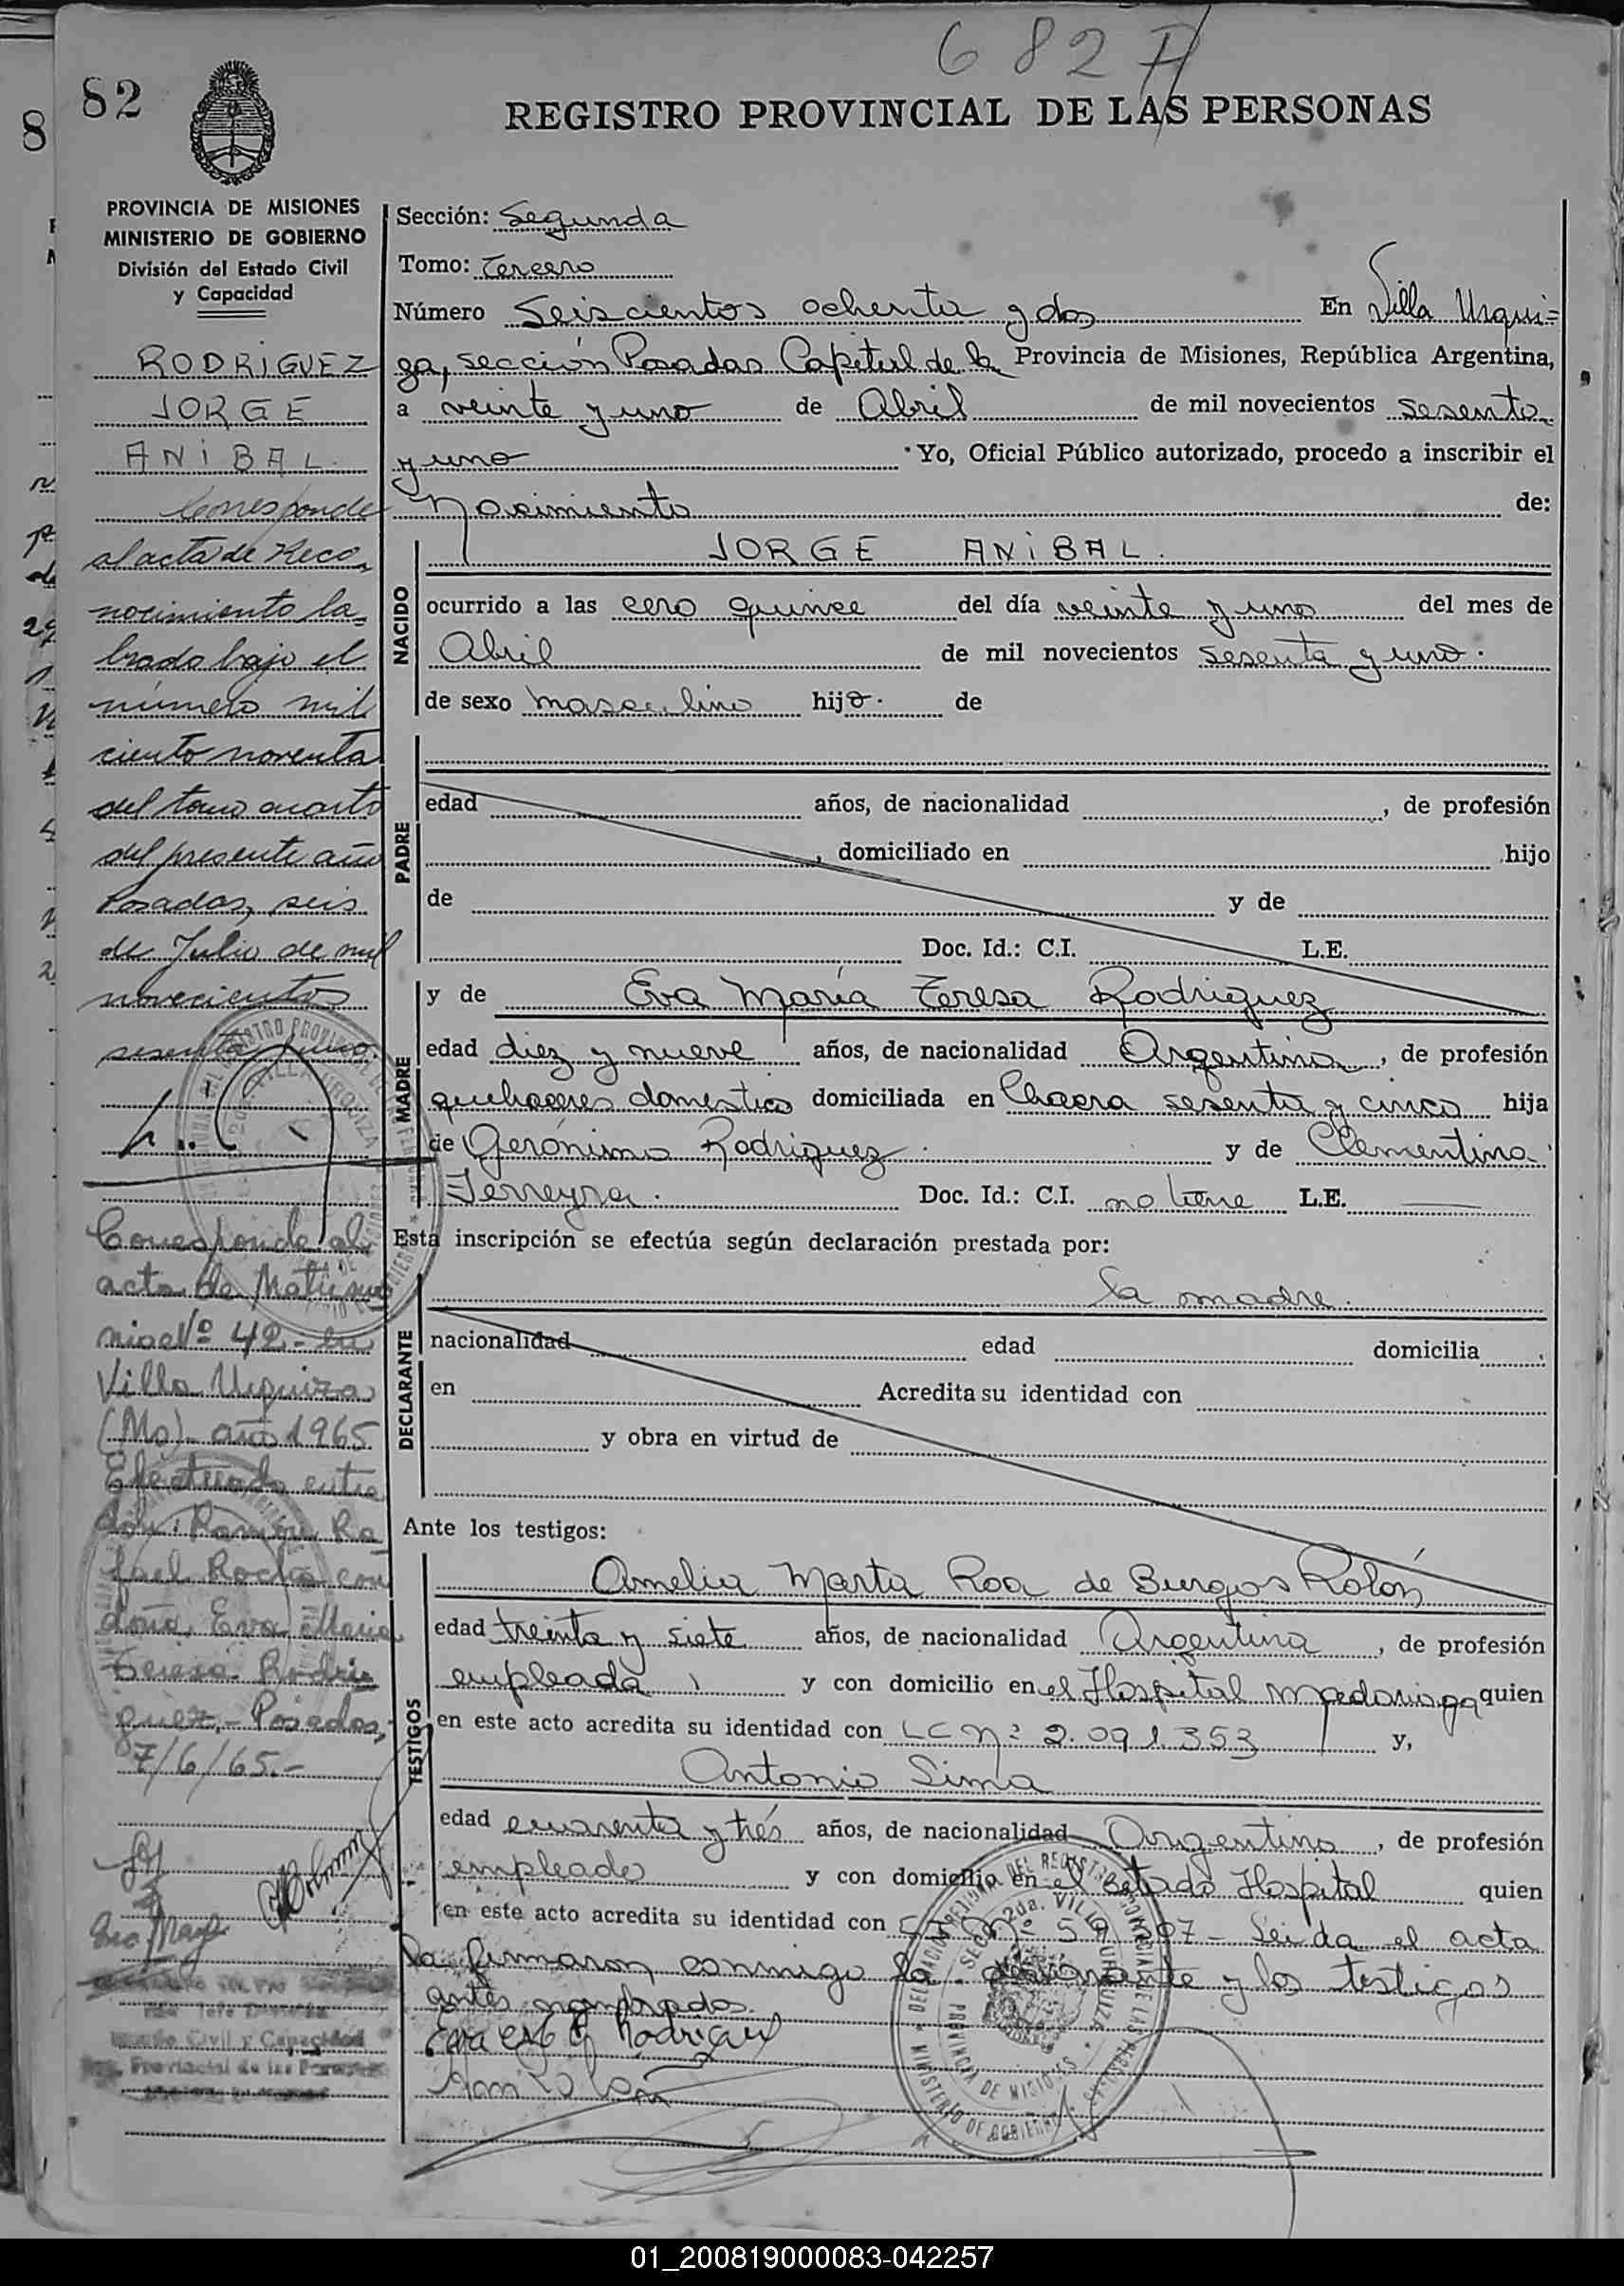 682 A
82
REGISTRO PROVINCIAL DE LAS PERSONAS
PROVINCIA DE MISIONES
MINISTERIO DE GOBIERNO
División del Estado Civil
y Capacidad
RODRIGUEZ
JORGE
ANIBAL.
Corresponde
al acta de Reco
nocimiento la=
brado bajo el
número mil
ciento noventa
del tomo cuarto
del presente año
Posadas, seis
de Julio de mil
novecientos
sesenta y uno.
Corresponde al
acta de Matrimo
nio Nº 42 - en
Villa Urquiza
(Ms) año 1965
Efectuado entre
don: Ramón Ra
fael Rocha con
doña, Eva Maria
Teresa Rodri
guez.- Posadas,
7/6/65.-
Sección: Segunda
Tomo: tercero
Número Seiscientos ochenta y dos En Villa Urqui=
za, sección Posadas Capital de la Provincia de Misiones, República Argentina,
a veinte y uno de Abril de mil novecientos sesenta
y uno Yo, Oficial Público autorizado, procedo a inscribir el
Nacimiento de:
NACIDO
JORGE ANIBAL.
ocurrido a las cero quince del día veinte y uno del mes de
Abril de mil novecientos sesenta y uno.
de sexo masculino hijo. de
PADRE
edad años, de nacionalidad , de profesión
, domiciliado en hijo
de y de
Doc. Id.: C.I. L.E.
MADRE
y de Eva María Teresa Rodriguez
edad diez y nueve años, de nacionalidad Argentina, de profesión
quehaceres domestico domiciliada en Chacra sesenta y cinco hija
de Gerónimo Rodriguez. y de Clementina
Ferreyra. Doc. Id.: C.I. no tiene L.E.
Esta inscripción se efectúa según declaración prestada por:
la madre.
DECLARANTE
nacionalidad edad domicilia
en Acredita su identidad con
y obra en virtud de
Ante los testigos:
TESTIGOS
Amelia Marta Roa de Burgos Rolón
edad treinta y siete años, de nacionalidad Argentina, de profesión
empleada y con domicilio en el Hospital quien
en este acto acredita su identidad con LC Nº 2.091.353 y,
Antonio Sima
edad cuarenta y trés años, de nacionalidad Argentino, de profesión
empleado y con domicilio en el Hospital quien
en este acto acredita su identidad con Leida el acta
la firmaron conmigo la y los testigos
antes nombrados.
01_200819000083-042257